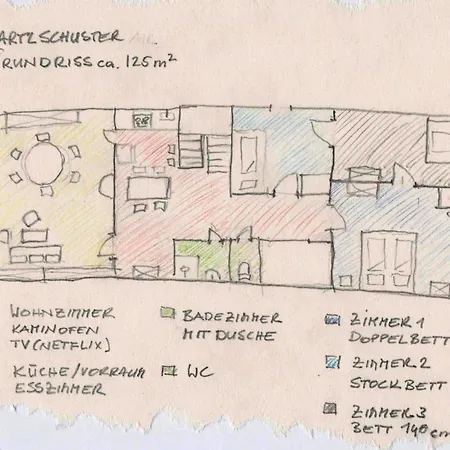 ARTLSCHUSTER
RUNDRISS ca. 125m²
WOHNZIMMER
KAMINOFEN
TV (NETFLIX)
KÜCHE/VORRAUM
ESSZIMMER
BADEZIMMER
MIT DUSCHE
WC
ZIMMER 1
DOPPELBETT
ZIMMER 2
STOCKBETT
ZIMMER 3
BETT 140cm